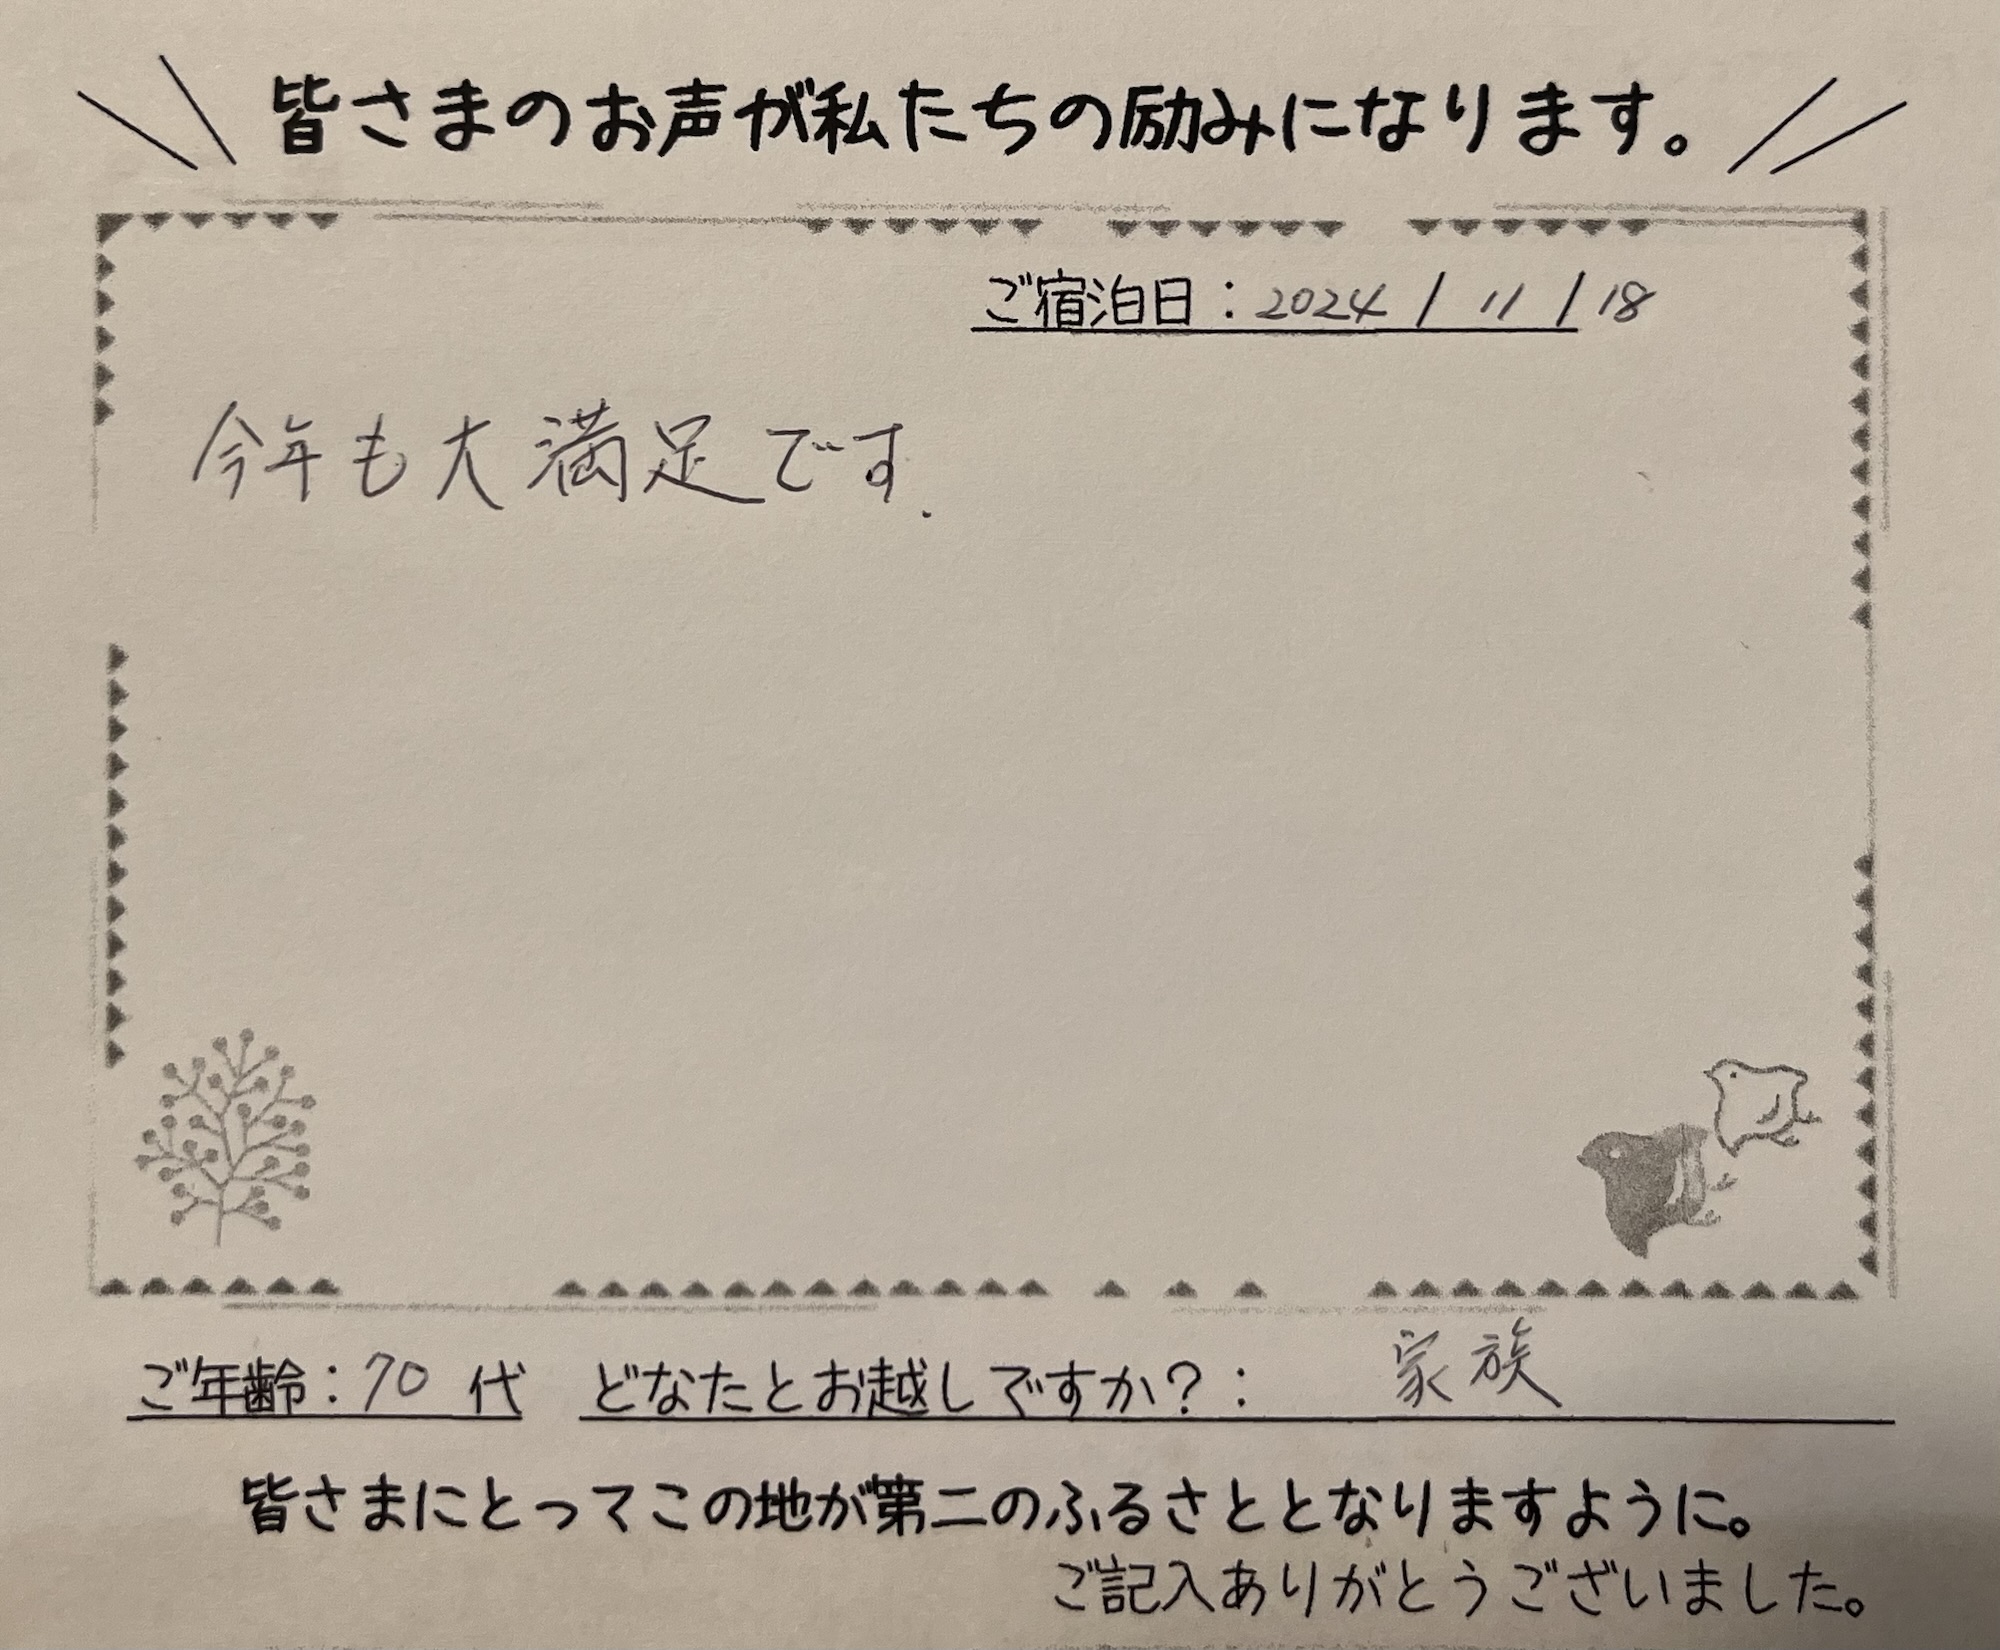 皆さまのお声が私たちの励みになります。
ご宿泊日：2024 / 11 / 18
今年も大満足です.
ご年齢：70 代 どなたとお越しですか？： 家族
皆さまにとってこの地が第二のふるさととなりますように。
ご記入ありがとうございました。